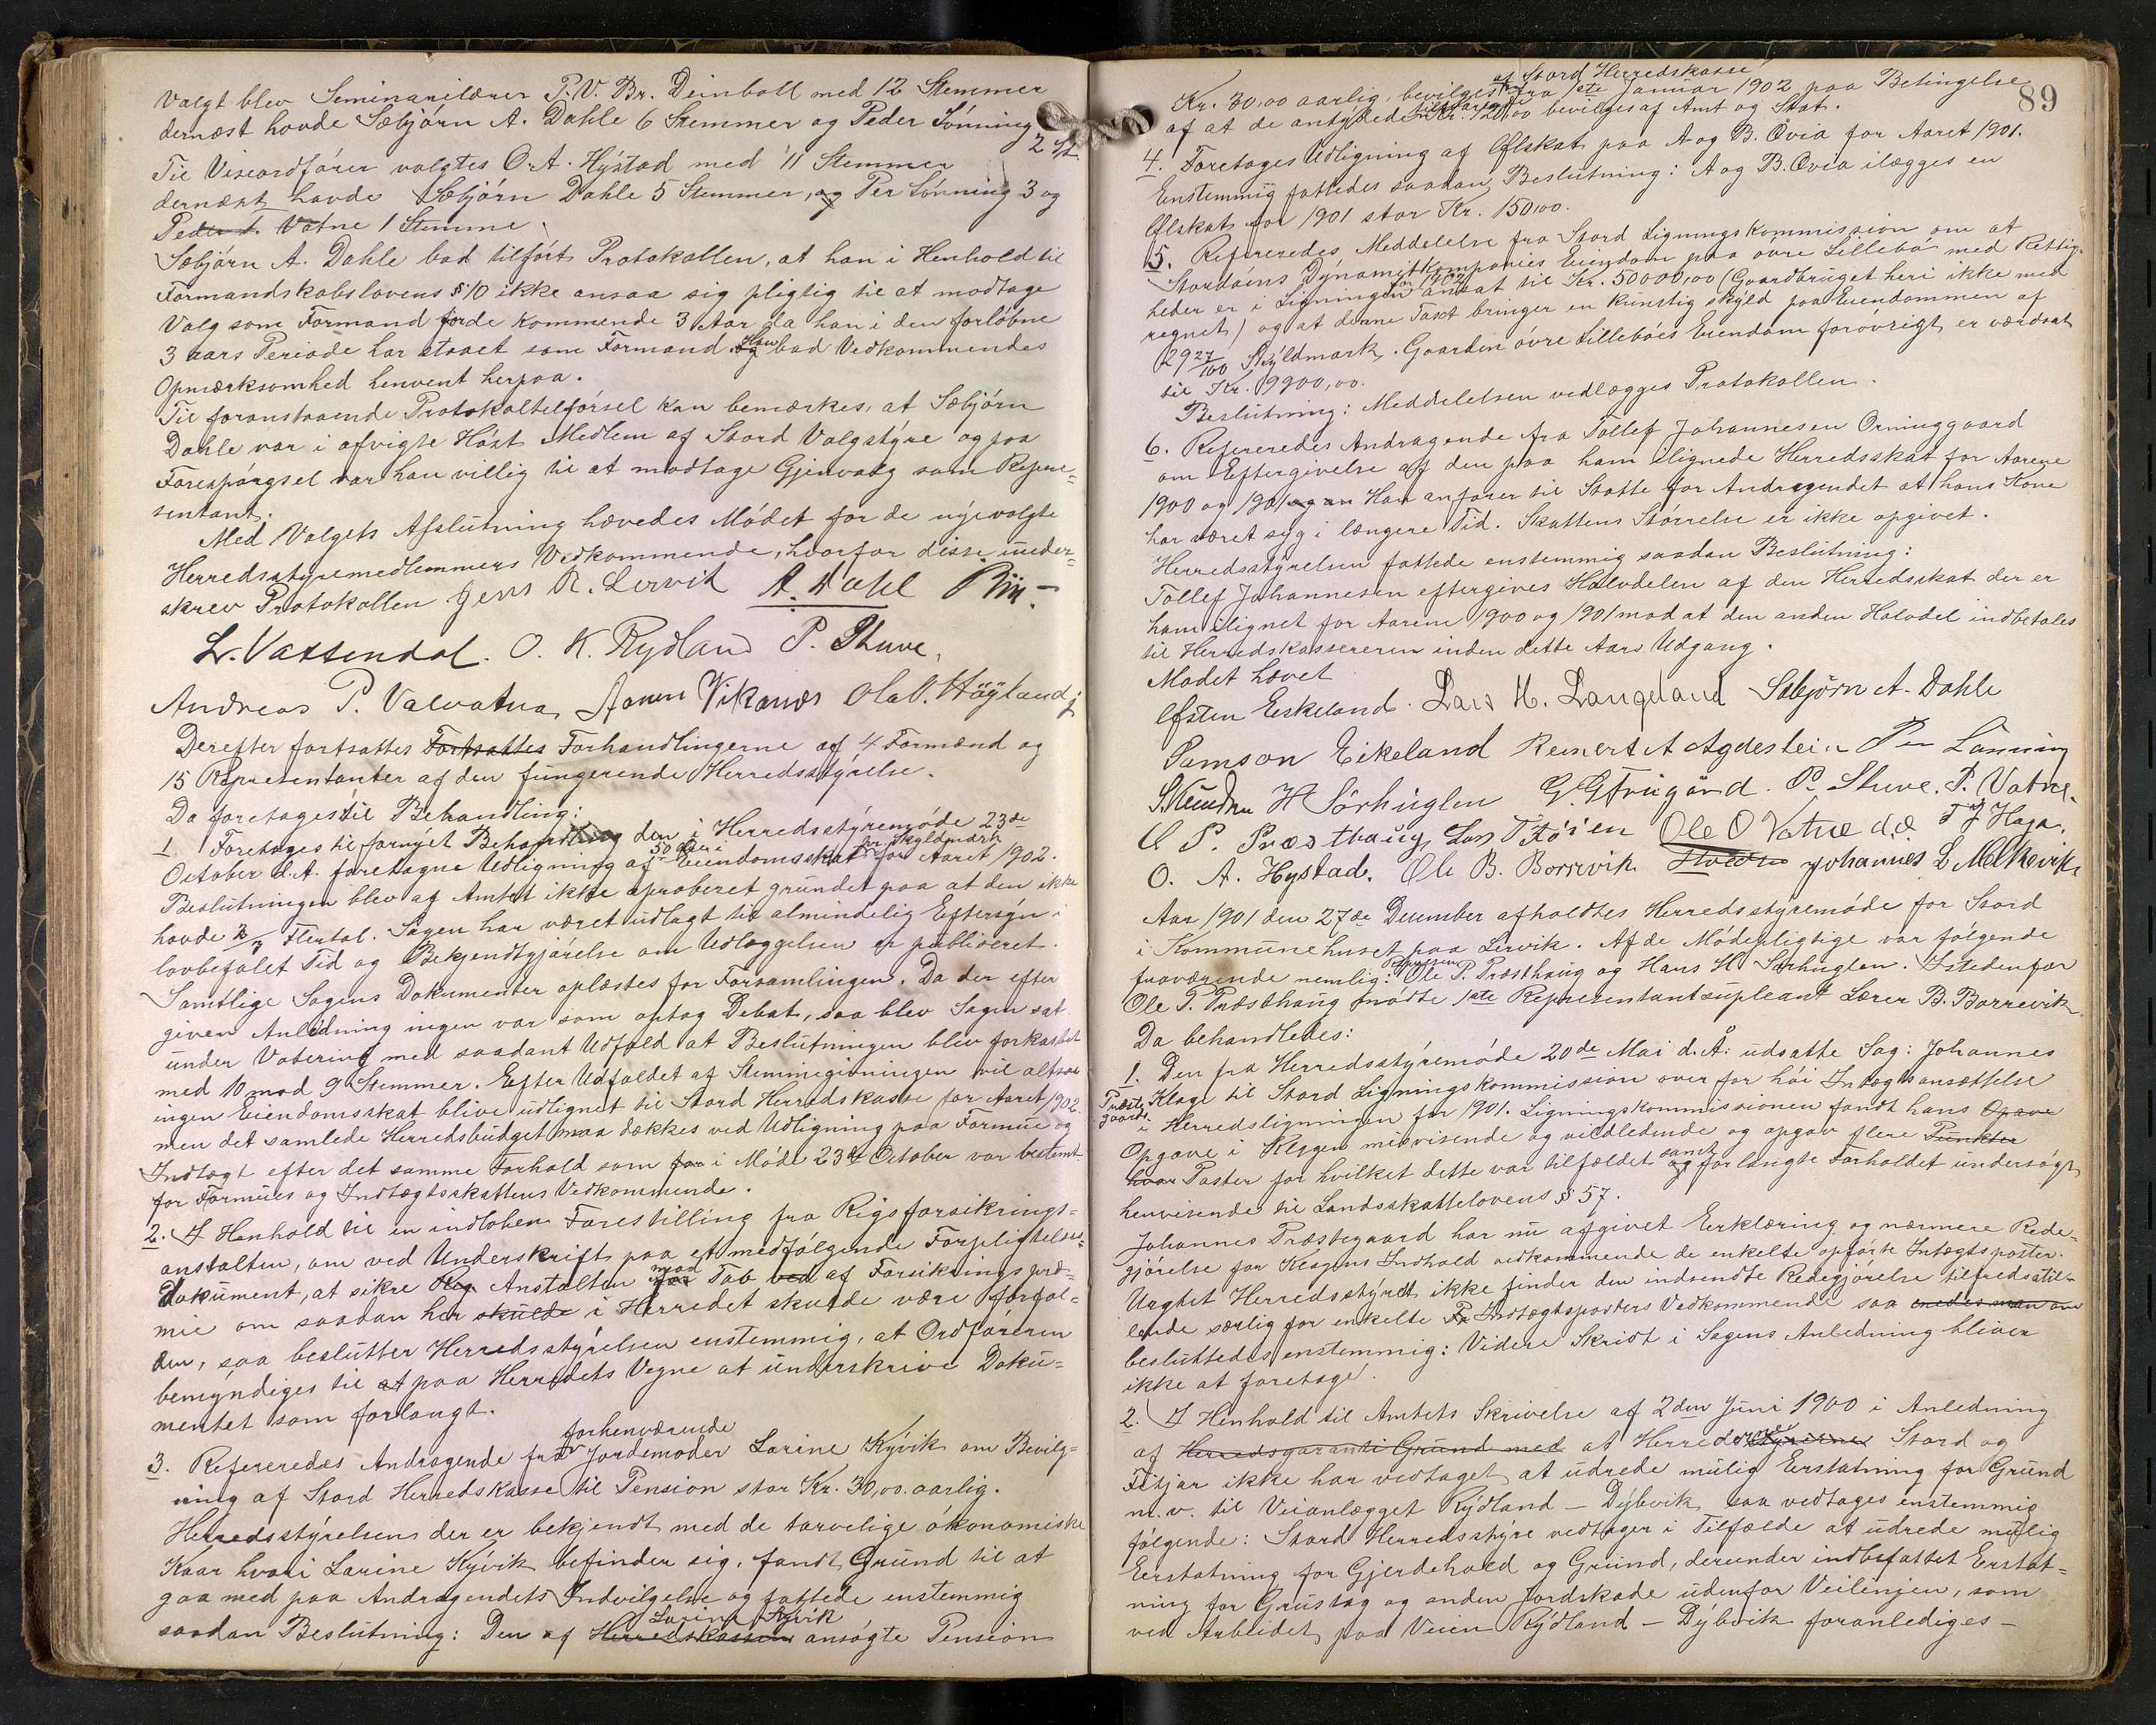 Valgt blev Seminarilærer P. V. Br. Deinboll med 12 Stemmer
dernæst havde Sæbjörn A. Dahle 6 Stemmer og Peder Sönning
2 St.
Til Viseordförer valgtes O. A. Hýstad med 11 Stemmer
dernæst havde Sæbjörn Dahle 5 Stemmer, og Per Lönning 3 og
Peder t. Vatne 1 Stemme.
Sæbjörn A. Dahle bad tilfört Protokollen, at han i Henhold til
Formandskabslovens § 10 ikke ansaa sig pligtig til at modtage
Valg som Formand for de kommende 3 Aar da han i den forlöbne
3 aars Periode har staaet som Formand og Han bad Vedkommendes
Opmærksomhed henvent herpaa.
Til foranstaaende Protokoltilförsel kan bemærkes, at Sæbjörn
Dahle var i afvigte Höst Medlem af Stord Valgstýre og paa
Forespörgsel var han villig til at modtage Gjenvalg som Repræ=
sentant.
Med Valgets Afslutning hævedes Mödet for de nyevalgte
Herredsstyremedlemmers Vedkommende, hvorfor disse under=
skrev Protokollen Jens R. Lervik A. Dahl
L. Vassendal. O. K. Rydland P. Stuve.
Andreas P. Valvatna Vikanes Ola O. Höyland
Derefter fortsattes Fortsattes Forhandlingerne af 4 Formænd og
15 Representanter af den fungerende Herredsstýrelse.
Da foretages til Behandling:
1 Foretages til fornýet Behandling den i Herredsstýremöde 23de
October d.A. foretagne Udligning af 50 Öre i Eiendomsskat pr Skyldmark for Aaret 1902.
Beslutningen blev af Amtet ikke aproberet grundet paa at den ikke
havde 2/3 Flertal. Sagen har været udlagt til almindelig Eftersýn i
lovbefalet Tid og Bekjendtgjörelse om Udlæggelsen er publiceret.
Samtlige Sagens Dokumenter oplæstes for Forsamlingen. Da der efter
given Anledning ingen var som optog Debat, saa blev Sagen sat
under Votering med saadant Udfald at Beslutningen blev forkastet
med 10 mod 9 Stemmer. Efter Udfaldet af Stemmegivningen vil altsaa
ingen Eiendomsskat blive udlignet til Stord Herredskasse for Aaret 1902.
men det samlede Herredsbudget maa dækkes ved Udligning paa Formue og
Indtægt efter det samme Forhold som for i Möde 23de October var bestemt
for Formues og Indtægtsskattens Vedkommende.
2. I Henhold til en indloben Forestilling fra Rigsforsikrings=
anstalten, om ved Underskrift paa et medfölgende Forpligtelses=
Dokument, at sikre Anstalten for mod Tab ved af Forsikringspræ=
mie om saadan her skulde i Herredet skulde være forfal=
den, saa beslutter Herredsstýrelsen enstemmig, at Ordföreren
bemýndiges til at paa Herredets Vegne at underskrive Doku=
mentet som forlangt.
3. Refereredes Andragende fra forhenværende Jordemoder Larine Kývik om Bevilg=
ning af Stord Herredskasse til Pension stor Kr. 30,00 aarlig.
Herredsstýrelsen der er bekjendt med de tarvelige ökonomiske
Kaar hvori Larine Kývik befinder sig, fandt Grund til at
gaa med paa Andragendets Indvilgelse og fattede enstemmig
saadan Beslutning: Den af Herredskassen Larine Kývik ansögte Pension
89
Kr. 30,00 aarlig, bevilges af Stord Herredskasse fra 1ste Januar 1902 paa Betingelse
af at de antydede tilsvarende Kr. 120,00 bevilges af Amt og Stat.
4. Foretages Udligning af Ölskat paa A og B. Ovia for Aaret 1901.
Enstemmig fattedes saadan Beslutning: A og B. Ovia ilægges en
Ölskat for 1901 stor Kr. 150,00.
5. Refereredes Meddelelse fra Stord Ligningskommission om at
Stordöens Dýnamitkompanies Eiendom paa övre Lillebö med Rettig=
heder er i Ligningen for 1902 ansat til Kr. 50000,00 (Gaardbruget heri ikke med
regnet) og at denne Taxt bringer en kunstig skýld paa Eiendommen af
29 27/100 Skýldmark. Gaarden övre Lilleböes Eiendom forövrigt er værdsat
til Kr. 9900,00.
Beslutning: Meddelelsen vedlægges Protokollen.
6. Refereredes Andragende fra Tollef Johannesen Orninggaard
om Eftergivelse af den paa ham ilignede Herredsskat for Aarene
1900 og 1901 og an Han anförer til Stötte for Andragendet at hans Kone
har været syg i længere Tid. Skattens Störrelse er ikke opgivet.
Herredsstyrelsen fattede enstemmig saadan Beslutning:
Tollef Johannesen eftergives Halvdelen af den Herredsskat der er
ham ilignet for Aarene 1900 og 1901 mod at den anden Halvdel indbetales
til Herredskassereren inden dette Aars Udgang.
Mödet hævet
Östen Eskeland. Lars H. Langeland Sæbjörn A. Dahle
Samson Eikeland Reinert A Agdestein Per Lönning
H Sörhuglen G. G. Frugård. P. Stuve. P. Vatne.
O P. Præsthaug Ole O Vatne d.e T J Haga.
O. A. Hystad. Ole B. Borrevik Johannes L Melkevik
Aar 1901 den 27de December afholdtes Herredsstyremöde for Stord
i Kommunehuset paa Lervik. Af de Mödepligtige var fölgende
fraværende nemlig: Ole P. Præsthaug og Hans H. Sörhuglen. Istedenfor
Ole P. Præsthaug mödte 1ste Representantsupleant Lærer B. Borrevik
Da behandledes:
1. Den fra Herredsstýremöde 20de Mai d. Å. udsatte Sag: Johannes
Præste gaards Klage til Stord Ligningskommission over for höi Indtægtsansættelse
i Herredsligningen for 1901. Ligningskommissionen fandt hans Opave
Opgave i Klagen misvisende og vildledende og opgav flere Punkter
hvor Poster for hvilket dette var tilfældet og samt forlangte Forholdet undersögt
henvisende til Landsskattelovens § 57.
Johannes Præstegaard har nu afgivet Erklæring og nærmere Rede=
gjörelse for Klagens Indhold vedkommende de enkelte opförte Intægtsposter.
Uagtet Herredsstyret ikke finder den indsendte Redegjörelse tilfredsstil=
lende særlig for enkelte Indtægtsposters Vedkommende saa enedes man om
besluttedes enstemmig: Videre Skridt i Sagens Anledning bliver
ikke at foretage.
2. I Henhold til Amtets Skrivelse af 2den Juni 1900 i Anledning
af Herredsgaranti Grund med at Herredsstyrerne Stord og
Fitjar ikke har vedtaget at udrede mulig Erstatning for Grund
m. v. til Veianlægget Rýdland – Dýbvik, saa vedtages enstemmig
fölgende: Stord Herredsstýre vedtager i Tilfælde at udrede mulig
Erstatning for Gjerdehold og Grund, derunder indbefattet Erstat=
ning for Grustag og anden Jordskade udenfor Veilinjen, som
ved Arbeidet paa Veien Rýdland – Dýbvik foranlediges –